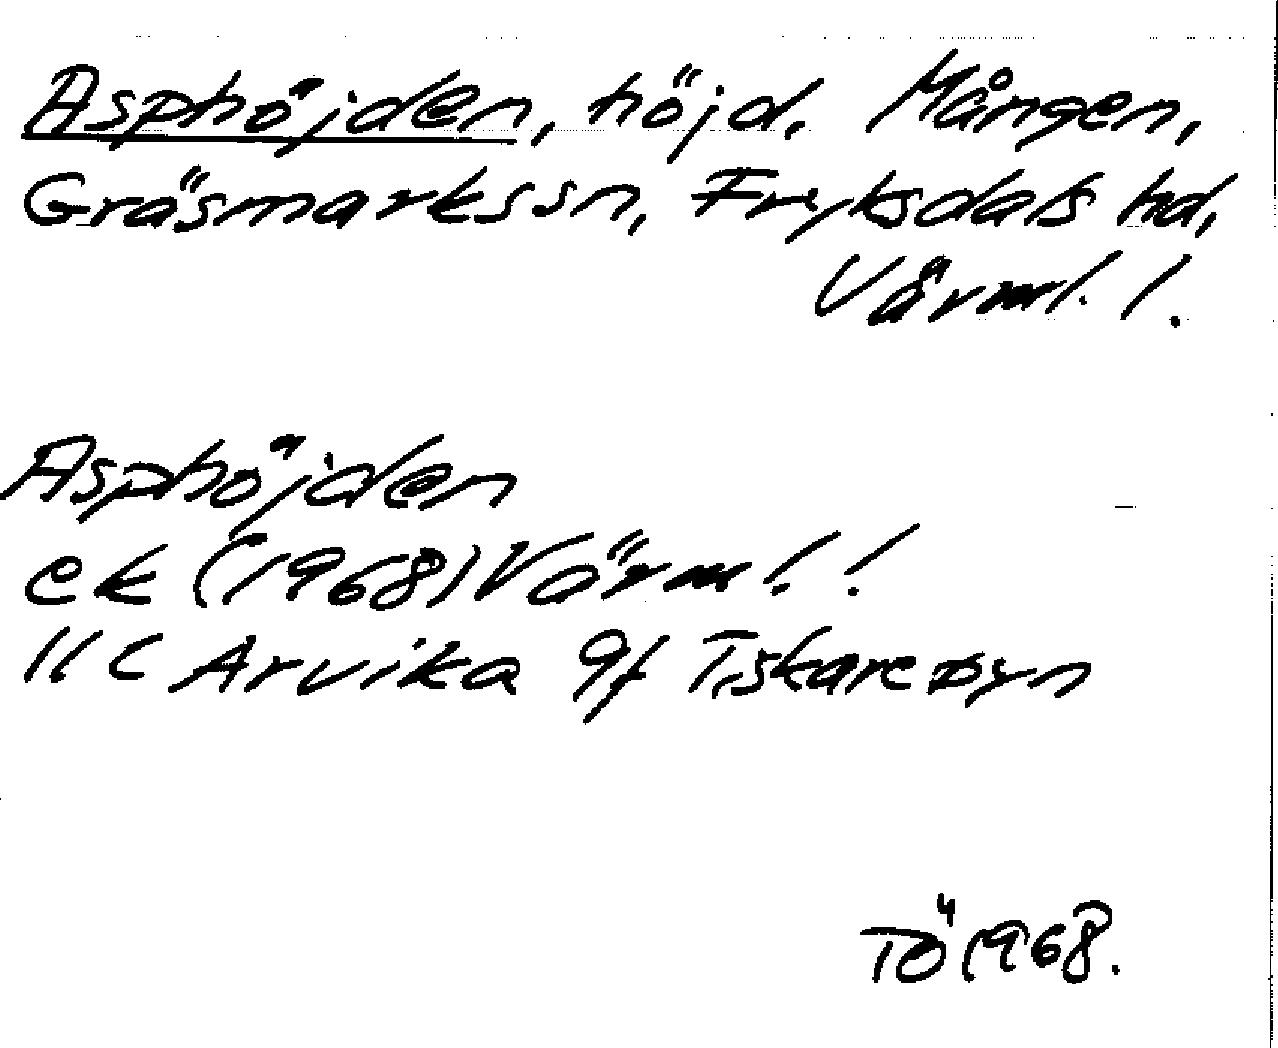 Asphöjden, höjd. Mången,
Gräsmarkssn, Fryksdals hd,
Värml. l.
Asphöjden
ek (1968) Värml. l.
11C Arvika 9f Tiskarebyn
TÖ 1968.